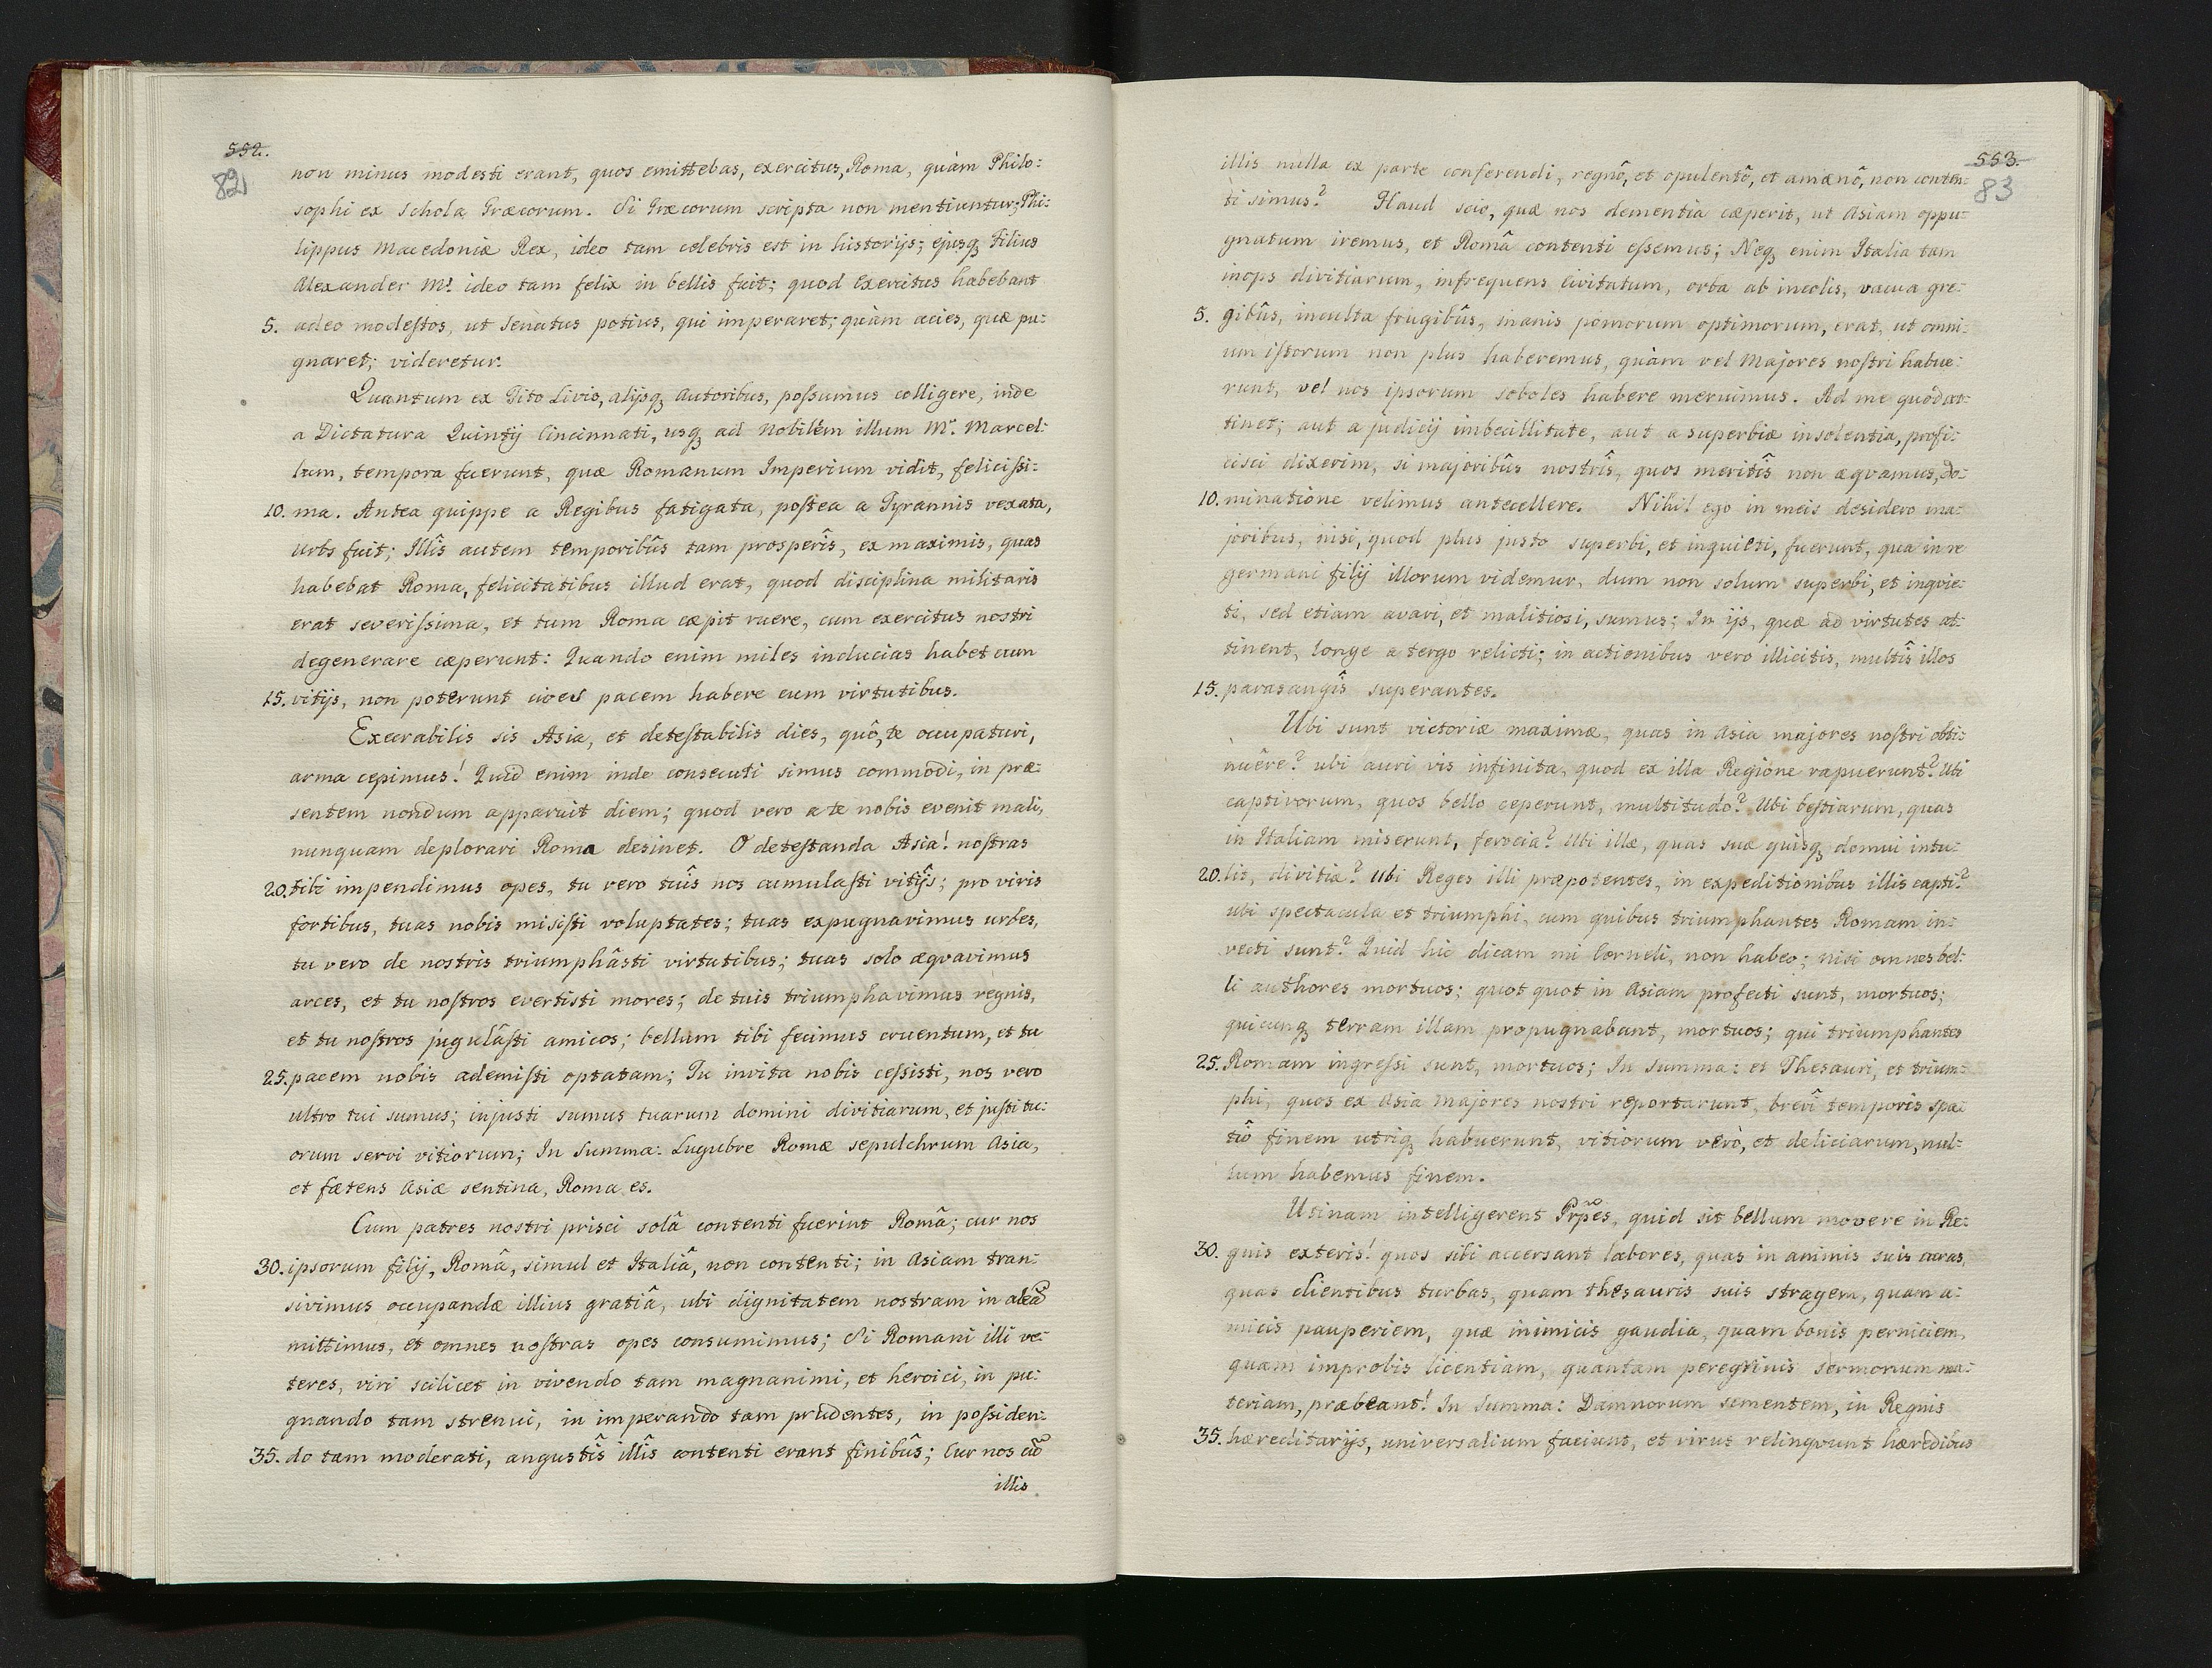 552.
82
non minus modesti erant, quos emittebas, exercitus, Roma, quàm Philo:
sophi ex Schola Græcorum. Si Græcorum scripta non mentiuntur; Phi:
lippus Macedoniæ Rex, ideo tam celebris est in historijs; ejusq́ Filius
Alexander M. ideo tam felix in bellis fuit; quod Exercitus habebant
5. adeo modestos, ut Senatus potius, qui imperaret; quàm acies, quæ pu:
gnaret; videretur.
Quantum ex Tito Livio, alijsq́ Autoribus, possumus colligere, inde
a Dictatura Quintij Cincinnati, usq́ ad Nobilem illum M. Marcel:
lum, tempora fuerunt, quæ Romanum Imperium vidit, felicissi:
10. ma. Antea quippe a Regibus fatigata, postea a Tyrannis vexata,
Urbs fuit; Illîs autem temporibûs tam prosperîs, ex maximis, quas
habebat Roma, felicitatibus illud erat, quod disciplina militaris
erat severissima, et tum Roma cæpit ruere, cum exercitus nostri
degenerare cæperunt: Quando enim miles inducias habet cum
15. vitijs, non poterunt cives pacem habere cum virtutibus.
Execrabilis sis Asia, et detestabilis dies, quô, te occupaturi,
arma cepimus! Quid enim inde consecuti simus commodi, in præ:
sentem nondum apparuit diem; quod vero a te nobis evenit mali,
nunquam deplorari Roma desinet. O detestanda Asia! nostras
20. tibi impendimus opes, tu vero tuîs nos cumulasti vitijs; pro viris
fortibus, tuas nobis misisti voluptates; tuas expugnavimus urbes,
tu vero de nostris triumphâsti virtutibus; tuas solo æqvavimus
arces, et tu nostros evertisti mores; de tuis triumphavimus regnis,
et tu nostros jugulâsti amicos; bellum tibi fecimus cruentum, et tu
25. pacem nobis ademisti optatam; Tu invita nobis cessisti, nos vero
ultro tui sumus; injusti sumus tuarum domini divitiarum, et justi tu:
orum servi vitiorum; In Summa: Lugubre Romæ sepulchrum Asia,
et fætens Asiæ sentina, Roma es.
Cum patres nostri prisci solâ contenti fuerint Româ; cur nos
30. ipsorum filij, Româ, simul et Italiâ, non contenti; in Asiam tran:
sivimus occupandæ illius gratiâ, ubi dignitatem nostram in aleã
mittimus, et omnes nostras opes consumimus; Si Romani illi ve:
teres, viri scilicet in vivendo tam magnanimi, et heroici, in pu:
gnando tam strenui, in imperando tam prudentes, in possiden:
35. do tam moderati, angustîs illîs contenti erant finibûs; Cur nos cũ
illis
553.
83
illis nulla ex parte conferendi, regnô, et opulentô, et amænô, non conten:
ti simus? Haud scio, quæ nos dementia cæperit, ut Asiam oppu:
gnatum iremus, et Româ contenti essemus; Neq́ enim Italia tam
inops divitiarum, infrequens civitatum, orba ab incolis, vacua gre:
5. gibûs, inculta frugibûs, inanis pomorum optimorum, erat, ut omni:
um istorum non plus haberemus, quàm vel Majores nostri habue:
runt, vel nos ipsorum soboles habere meruimus. Ad me quod at:
tinet; aut a judicij imbecillitate, aut a superbiæ insolentia, profi:
cisci dixerim, si majoribûs nostrîs, quos meritîs non æqvamus, do:
10. minatione velimus antecellere. Nihil ego in meis desidero ma:
joribus, nisi, quod plus justo superbi, et inquieti, fuerunt, qua in re
germani filij illorum videmur, dum non solum superbi, et inqvie:
ti, sed etiam avari, et malitiosi, sumus; In ijs, quæ ad virtutes at:
tinent, longe a tergo relicti; in actionibus vero illicitis, multîs illos
15. parasangîs superantes.
Ubi sunt victoriæ maximæ, quas in Asia majores nostri obti:
nuêre? ubi auri vis infinita, quod ex illa Regione rapuerunt? Ubi
captivorum, quos bello ceperunt, multitudo? Ubi bestiarum, quas
in Italiam miserunt, ferocia? Ubi illæ, quas suæ quisq́ domui intu:
20. lis, divitiæ? Ubi Reges illi præpotentes, in expeditionibus illis capti?
ubi spectacula et triumphi, cum quibus triumphantes Romam in:
vecti sunt? Quid hic dicam mi Corneli, non habeo; nisi omnes bel:
li authores mortuos; quot quot in Asiam profecti sunt, mortuos;
quicunq́ terram illam propugnabant, mortuos; qui triumphantes
25. Romam ingressi sunt, mortuos; In Summa: et Thesauri, et trium:
phi, quos ex Asia Majores nostri reportarunt, brevî temporis spa:
tiô finem utriq́ habuerunt, vitiorum verò, et deliciarum, nul:
lum habemus finem.
Utinam intelligerent Prpes, quid sit bellum movere in Re:
30. gnis exteris! quos sibi accersant labores, quas in animis suis curas,
quas clientibus turbas, quam thesauris suis stragem, quam a:
micis pauperiem, quæ inimicis gaudia, quam bonis perniciem,
quam improbis licentiam, quantam peregrinis sermonum ma:
teriam, præbeant! In Summa: Damnorum sementem, in Regnis
35. hæreditarijs, universalium faciunt, et virus relinqvunt hæredibus